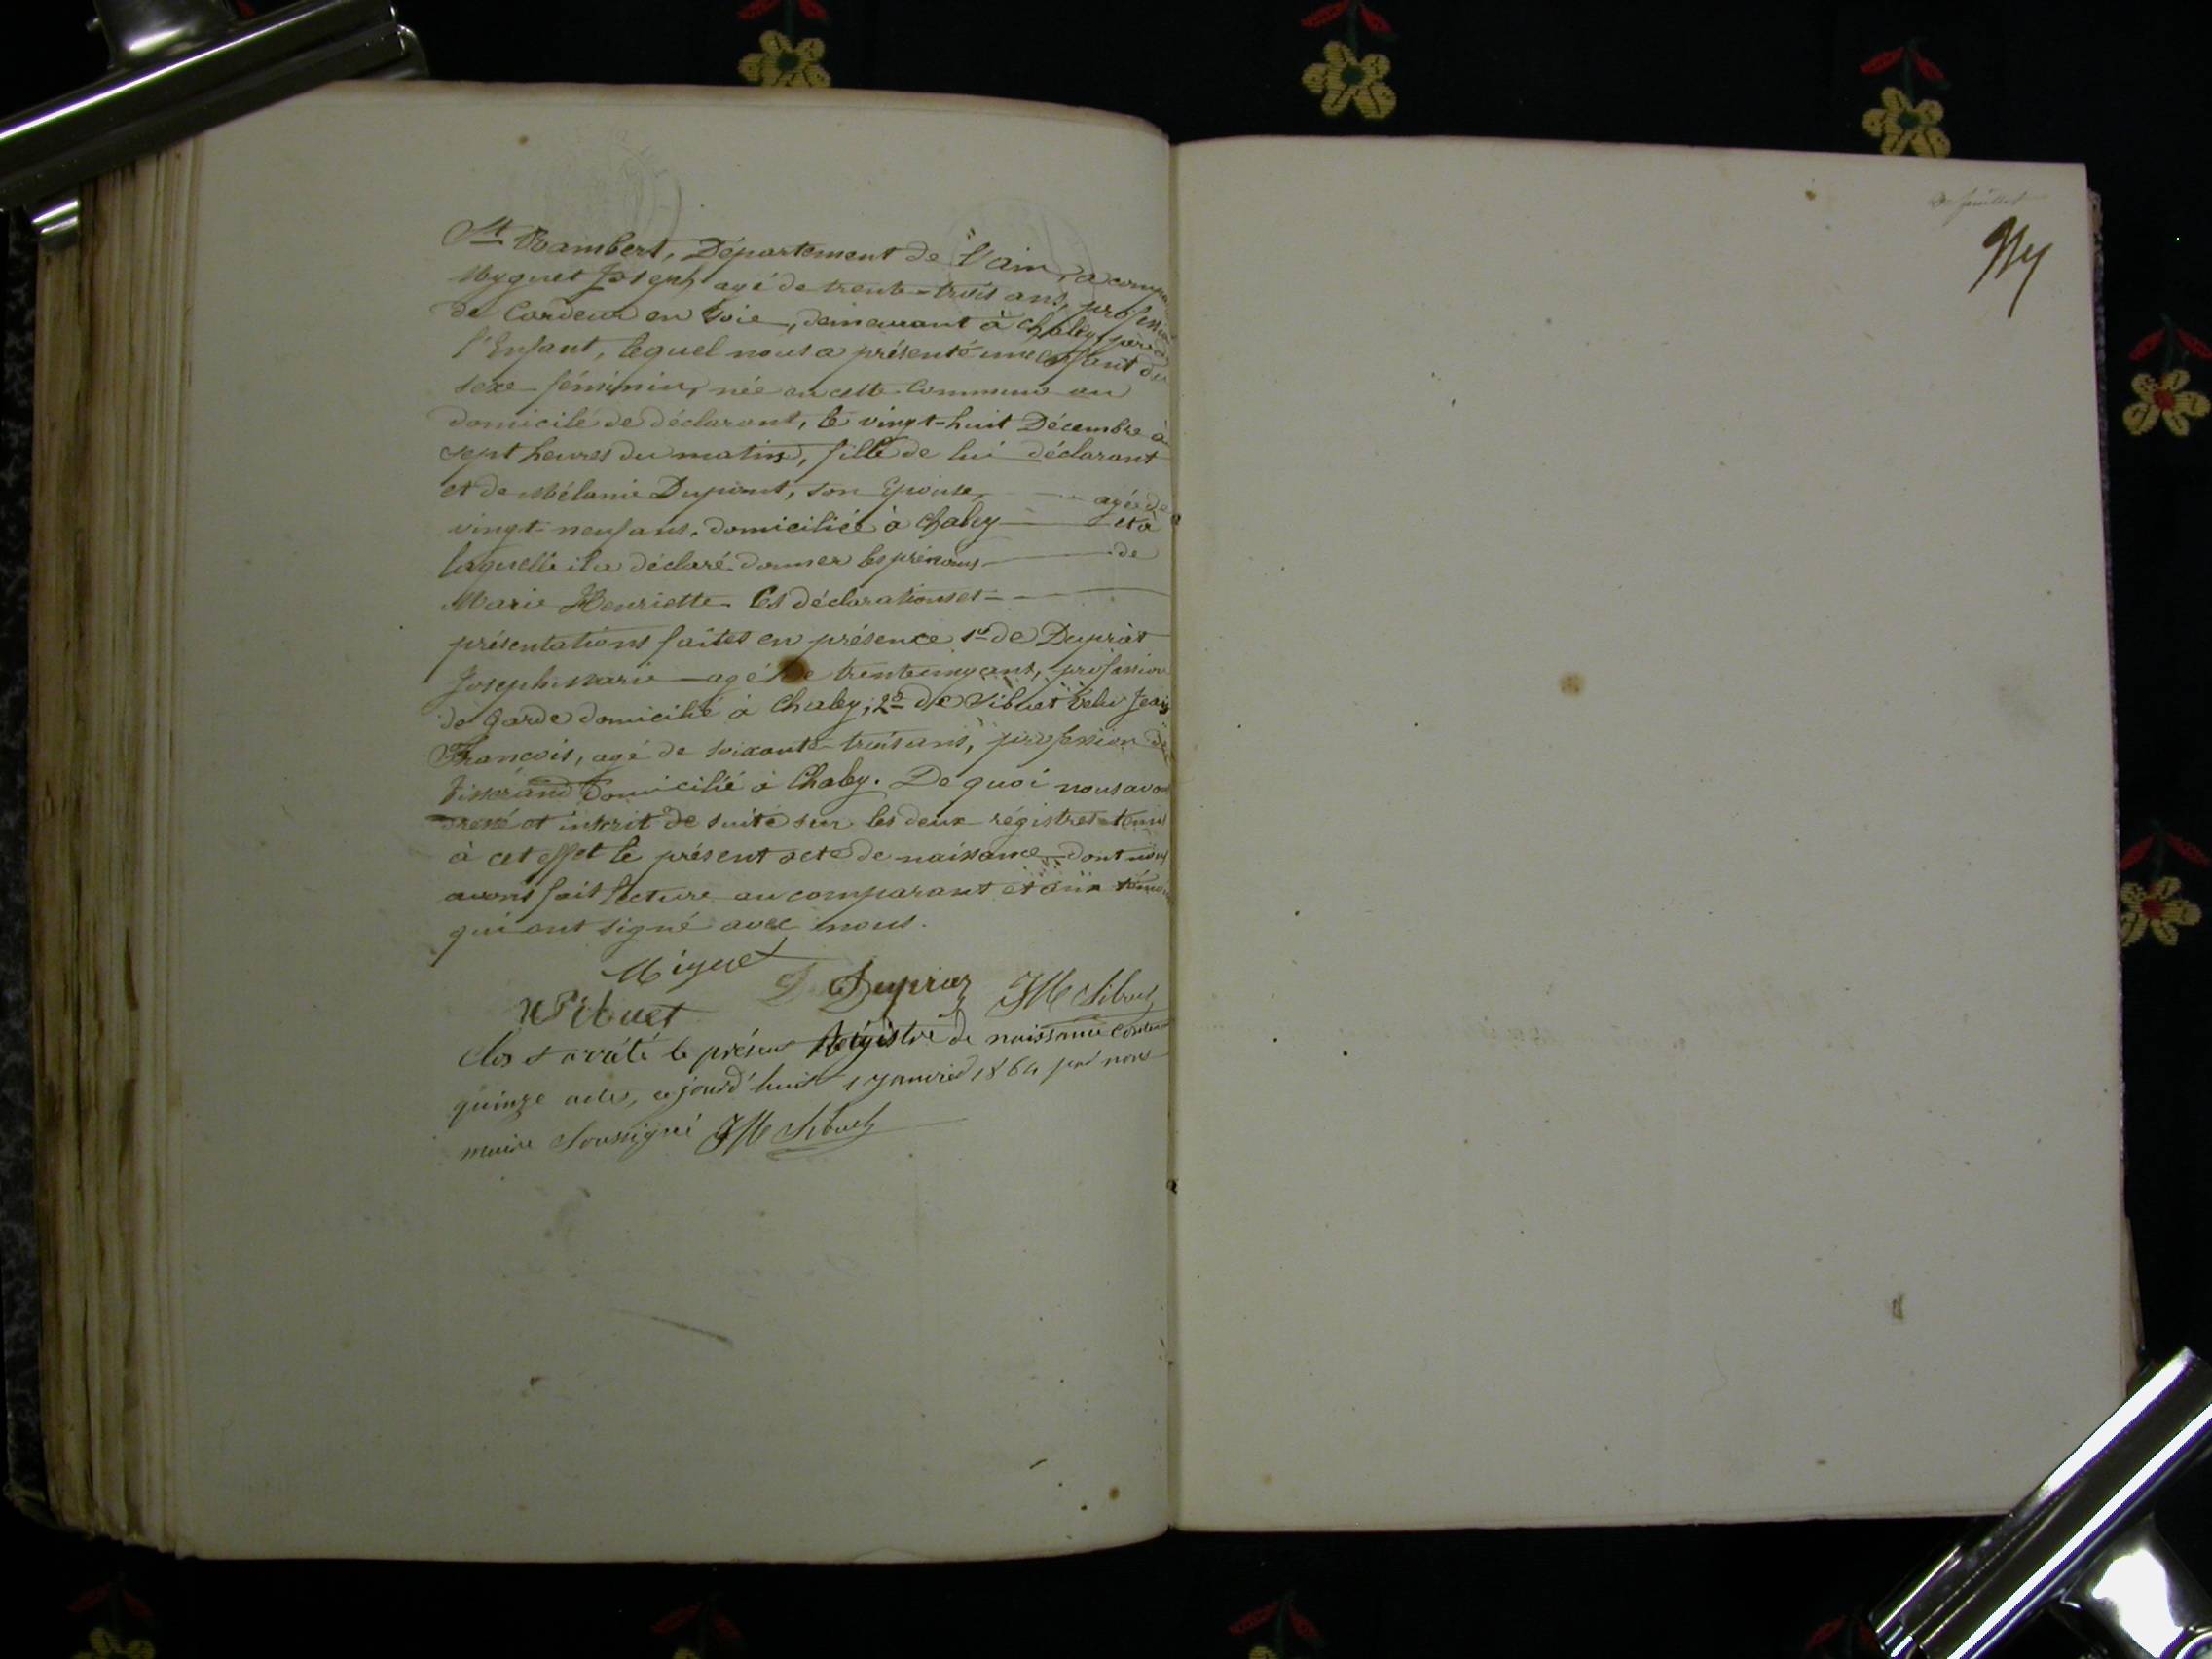 St Rambert, Département de l'ain, a compa
Myguet Joseph agé de trente-trois ans, profession
de Cardeur en soie, demeurant à Chaley, père de
l'Enfant, lequel nous a présenté une enfant du
sexe féminin, née en cette Commune au
domicile de déclarant, le vingt-huit Décembre à
sept heures du matin, fille de lui déclarant
et de Mélanie Dupont, son Epouse, agée de
vingt-neuf ans, domiciliée à Chaley et à
laquelle il a déclaré donner les prénoms de
Marie Henriette. Les déclarations et
présentations faites en présence 1º de Dupraz
Joseph Marie agé de trente cinq ans, profession
de Garde domicilié à Chaley; 2º de Sibuet Jean
François, agé de soixante-trois ans, profession de
Tisserand Domicilié à Chaley. De quoi nous avons
dressé et inscrit de suite sur les deux régistres tenus
à cet effet le présent acte de naissance dont nous
avons fait lecture au comparant et aux témoins
qui ont signé avec nous.
Miguet
Dupraz JM Sibuet
Sibuet
Clos et arrêté le présent Régistre de naissance conten
quinze actes, ce jourd'huit 1 janvier 1864 par nous
maire Soussigné JM Sibuet
feuillet